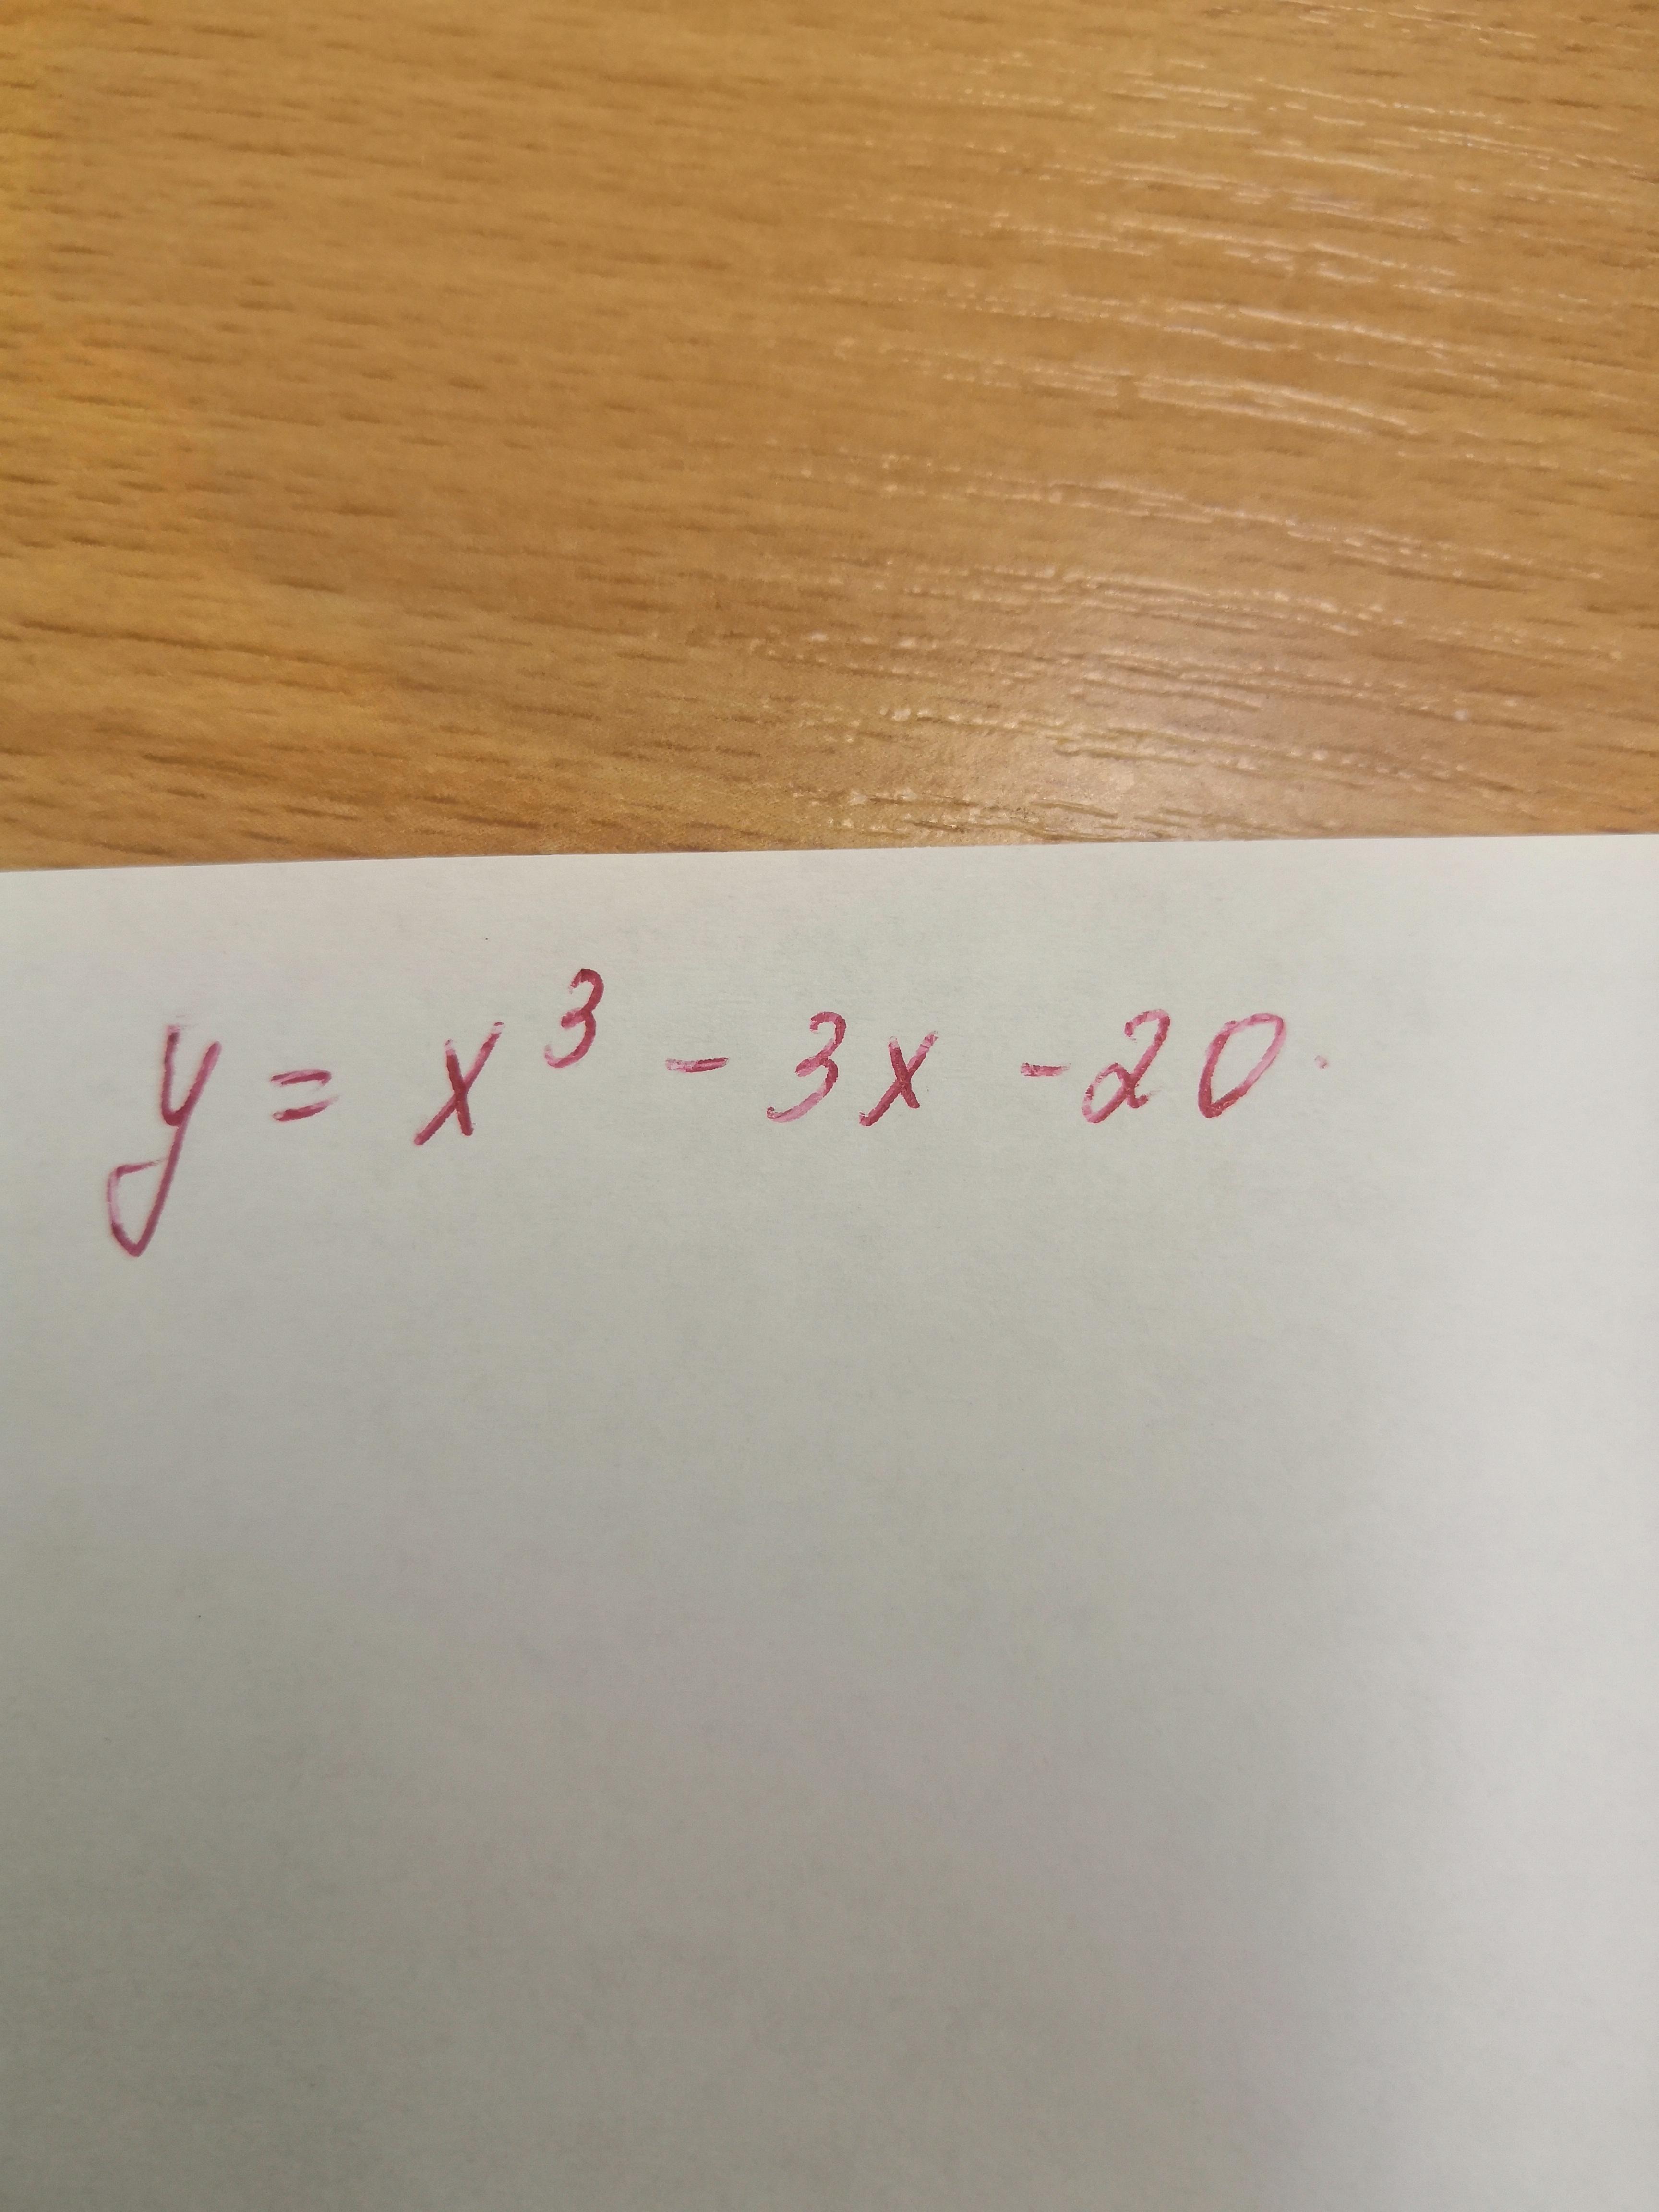 y = x³ - 3x - 20.